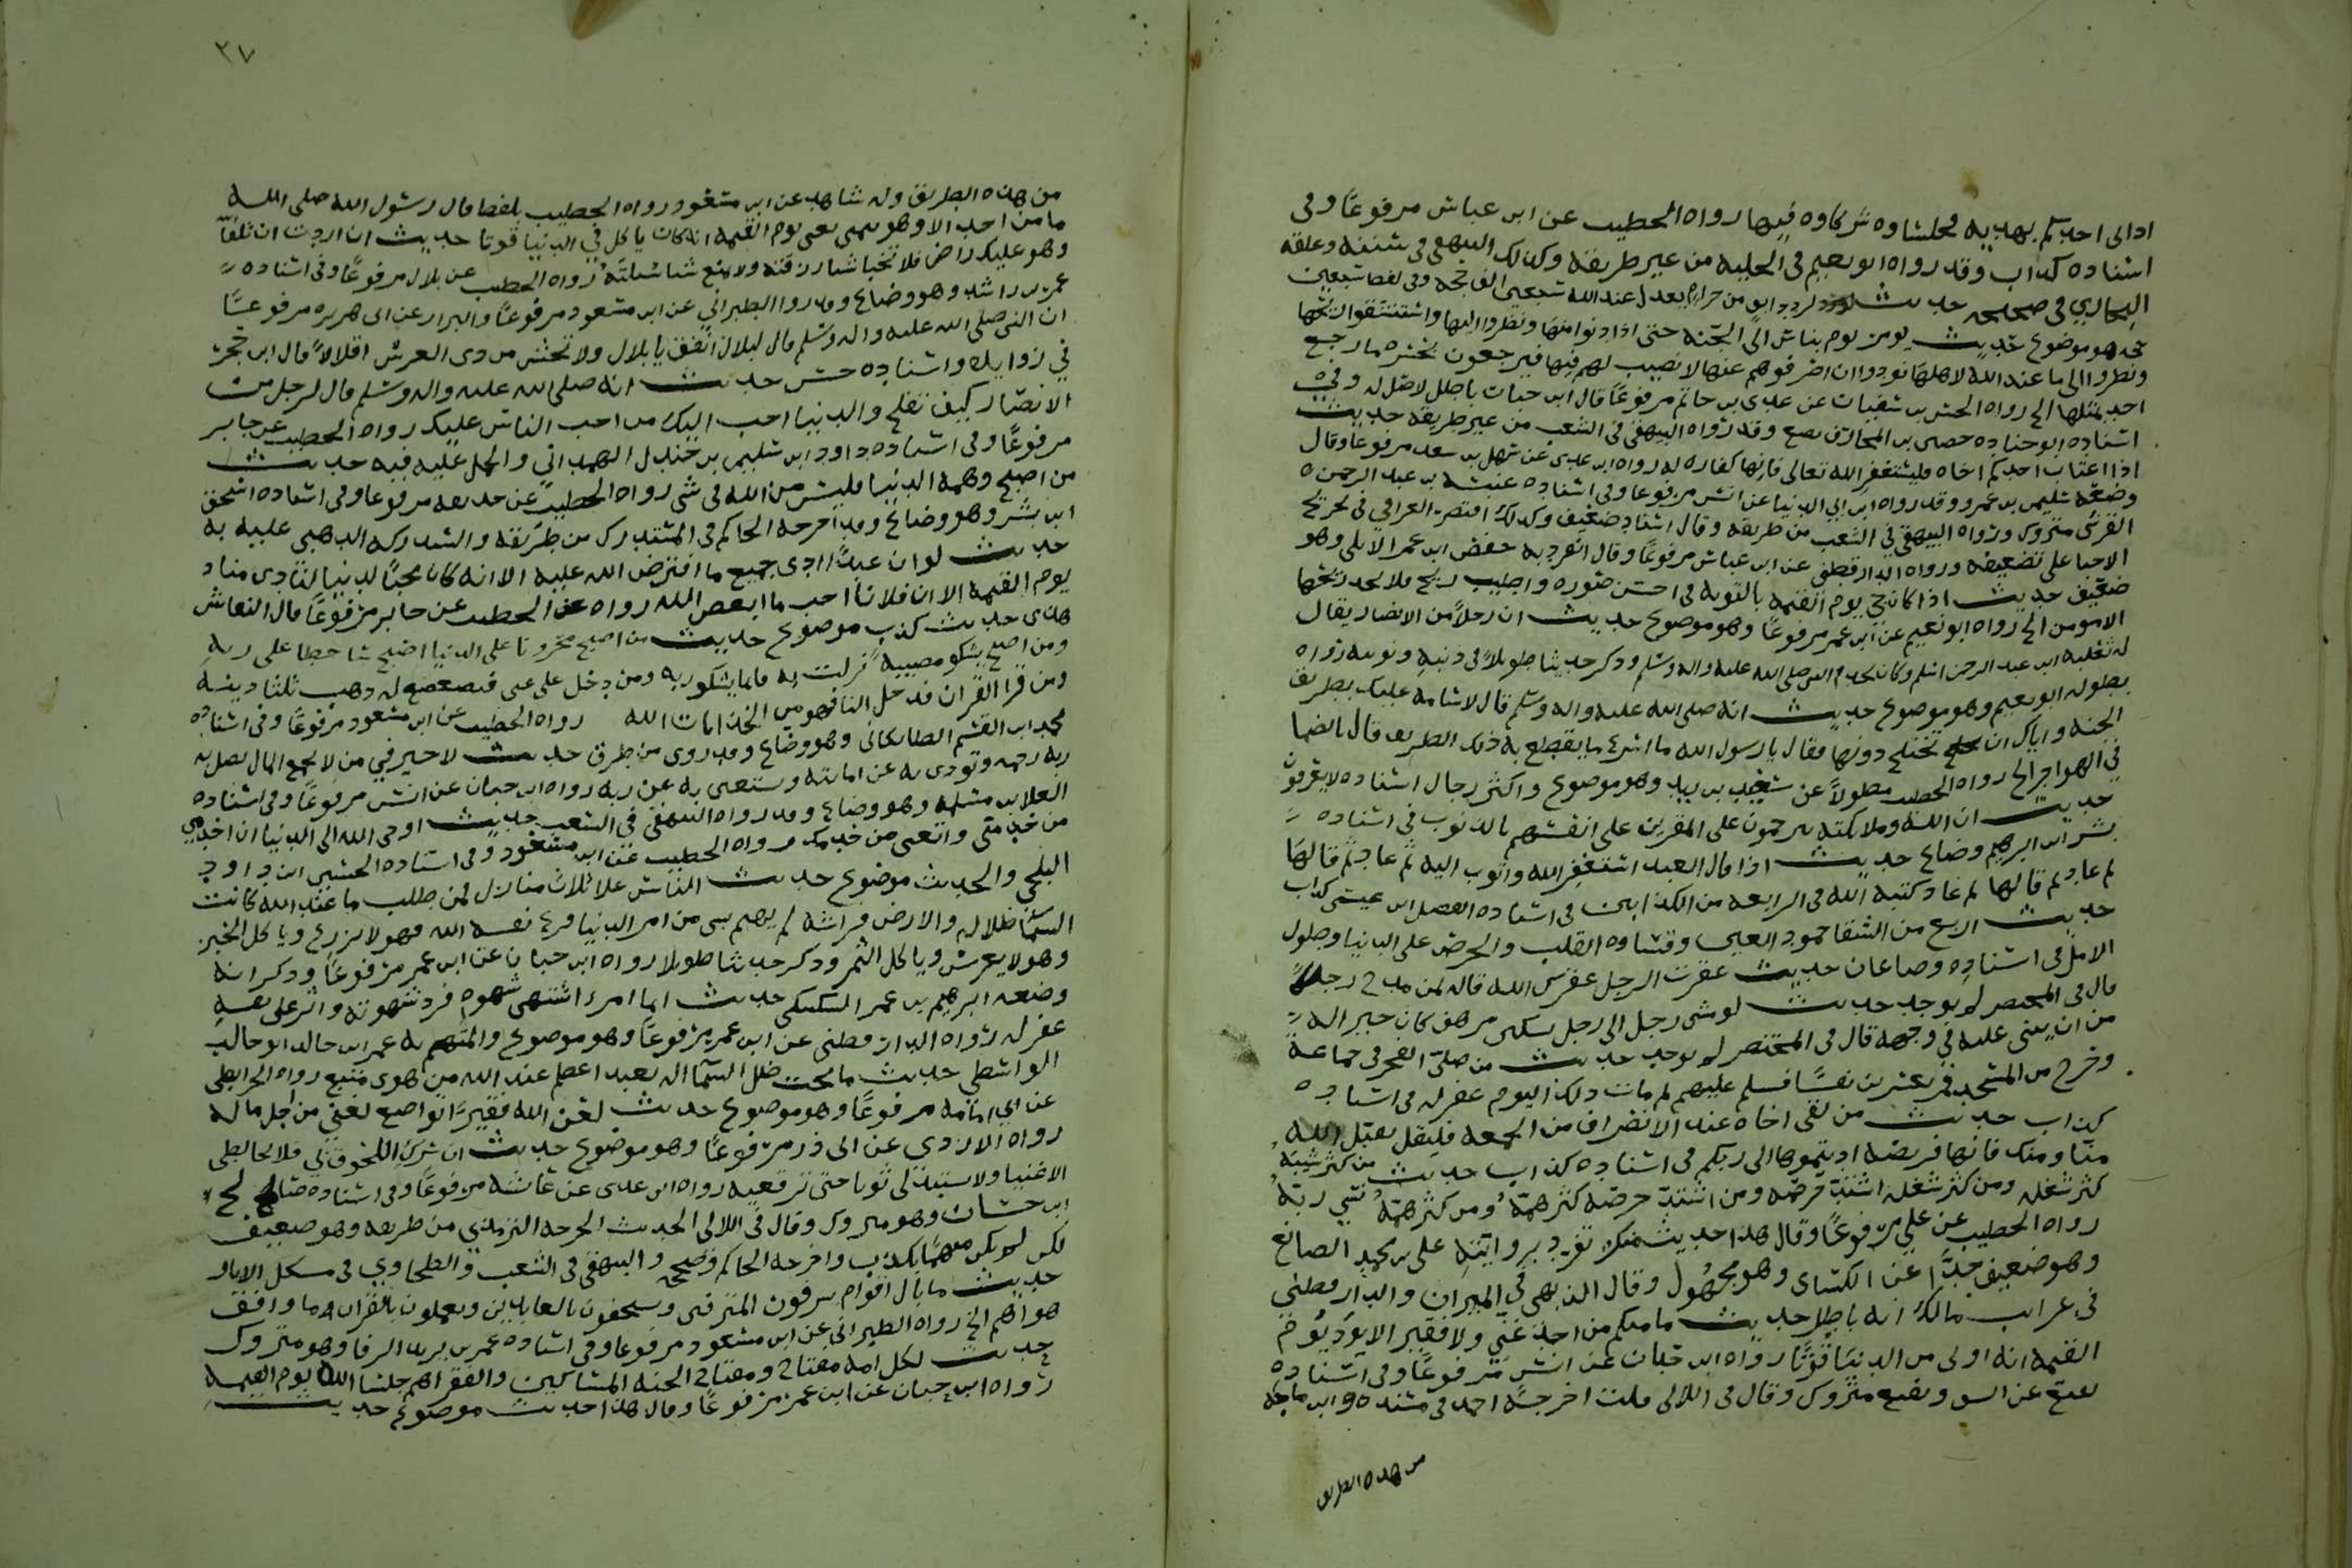 اذا اتى احدكم بهديه فجلساوه شركاوه فيها رواه الخطيب عن ابن عباس مرفوعًا وفي
اسناده كذاب وقد رواه ابو نعيم في الحلية من غير طريقه وكذلك البيهقي في سننه وعلقه
البخاري في صحيحه حديث لرد دانق من حرام يعدل عند الله سبعين الف حجه وفي لفظ سبعين
حجه هو موضوع حديث يومر يوم بناس الى الجنة حتى اذا دنوا منها ونظروا اليها واستنشقوا ريحها
ونظروا الى ما عند الله لاهلها نودوا ان اصرفوهم عنها لا نصيب لهم فيها فيرجعون بحسره ما رجع
احد بمثلها الخ رواه الحسن بن سفيان عن عدي بن حاتم مرفوعًا قال ابن حبان باطل لا اصل له وفي
اسناده ابو جناده حصين بن المخارق يضع وقد رواه البيهقي في الشعب من غير طريقه حديث
اذا اغتاب احدكم اخاه فليستغفر الله تعالى فانها كفاره له رواه ابن عدي عن سهل بن سعد مرفوعا وقال
وضعه سليمن بن عمرو وقد رواه ابن ابي الدنيا عن انس مرفوعا وفي اسناده عنبسه بن عبد الرحمن
القرشي متروك ورواه البيهقي في الشعب من طريقه وقال اسناد ضعيف وكذلك اقتصر العراقي في تخريج
الاحيا على تضعيفه ورواه الدارقطني عن ابن عباس مرفوعًا وقال انفرد به حفص ابن عمر الابلي وهو
ضعيف حديث اذا كان يوم القيمه بالتوبه في احسن صوره واطيب ريح فلا يجد ريحها
الا مومن الخ رواه ابو نعيم عن ابن عمر مرفوعًا وهو موضوع حديث ان رجلاً من الانصار يقال
له ثعلبه ابن عبد الرحمن اسلم وكان يخدم النبي صلى الله عليه واله وسلم وذكر حديثا طويلاً في ذنبه وتوبته رواه
بطوله ابو نعيم وهو موضوع حديث انه صلى الله عليه واله وسلم قال لاسامه عليك بطريق
الجنه واياك ان تختلج دونها فقال يا رسول الله ما اسرع ما يقطع به ذلك الطريق قال الظما
في الهواجر الخ رواه الخطيب مطولاً عن سعيد بن زيد وهو موضوع واكثر رجال اسناده لا يعرفون
حديث ان الله وملائكته يترحمون على المقرين على انفسهم بالذنوب في اسناده
بشر ابن ابرهيم وضاع حديث اذا قال العبد استغفر الله واتوب اليه ثم عاد ثم قالها
ثم عاد ثم قالها ثم عاد كتبه الله في الرابعه من الكذابين في اسناده الفضل ابن عيسى كذاب
حديث اربع من الشقا جمود العين وقساوه القلب والحرص على الدنيا وطول
الامل في اسناده وضاعان حديث
قال في المختصر لم يوجد حديث
من ان يبني عليه في وجهه قال في المختصر لم يوجد حديث من صلى الفجر في جماعة
وخرج من المسجد فمر بعشرين نفسًا فسلم عليهم ثم مات ذلك اليوم غفر له في اسناده
كذاب حديث من لقي اخاه عند الانصراف من الجمعه فليقل يقبل الله
منا ومنك فانها فريضه اديتموها الى ربكم في اسناده كذاب حديث من كثر شيبه
كثر شغله ومن كثر شغله اشتد حرصه ومن اشتد حرصه كثر همه ومن كثر همه نسي ربه
رواه الخطيب عن علي مرفوعًا وقال هذا حديث منكر تفرد بروايته علي بن محمد الصائغ
وهو ضعيف جدًا عن الكسائي وهو مجهول وقال الذهبي في الميزان والدارقطني
في غرائب مالك انه باطل حديث ما منكم من احد غني ولا فقير الا يود يوم
القيمه انه اوتي من الدنيا قوتًا رواه ابن حبان عن انس مرفوعًا وفي اسناده
نفيع عن انس ونفيع متروك وقال في اللآلي قلت اخرجه احمد في مسنده وابن ماجه
من هذه الطريق
٢٧
من هذه الطريق وله شاهد عن ابن مسعود رواه الخطيب بلفظ قال رسول الله صلى الله
ما من احد الا وهو يتمنى يعني يوم القيمه انه كان ياكل في الدنيا قوتا حديث ان اردت ان تلقا
وهو عليك راض فلا تخبا شيا رزقته ولا تمنع شيا سئلته رواه الخطيب عن بلال مرفوعًا وفي اسناده
عمر بن راشد وهو وضاع وقد روا الطبراني عن ابن مسعود مرفوعًا والبزار عن ابي هريره مرفوعًا
ان النبي صلى الله عليه واله وسلم قال لبلال انفق يا بلال ولا تخش من ذي العرش اقلالاً قال ابن حجر
في زوايده واسناده حسن حديث انه صلى الله عليه واله وسلم قال لرجل من
الانصار كيف تفلح والدنيا احب اليك من احب الناس عليك رواه الخطيب عن جابر
مرفوعًا وفي اسناده داود ابن سليمن بن جندل الهمداني والحمل عليه فيه حديث
من اصبح وهمه الدنيا فليس من الله في شي رواه الخطيب عن حذيفه مرفوعا وفي اسناده اسحق
ابن بشر وهو وضاع وقد اخرجه الحاكم في المستدرك من طريقه واستدركه الذهبي عليه به
حديث لو ان عبدًا ادى جميع ما افترض الله عليه الا انه كان محبًا لدنيا لنادى مناد
يوم القيمه الا ان فلانًا احب ما ابغض الله رواه الخطيب عن جابر مرفوعًا قال النقاش
هذي حديث كذب موضوع حديث من اصبح محزونا على الدنيا اصبح ساخطا على ربه
ومن اصبح يشكو مصيبة نزلت به فانما يشكو ربه ومن دخل على غني فتضعضع له ذهب ثلثا دينه
ومن قرا القران فدخل النار فهو ممن اتخذ ايات الله رواه الخطيب عن ابن مسعود مرفوعًا وفي اسناده
محمد ابن القسم الطايكاني وهو وضاع وقد روي من طرق حديث لا خير في من لا يجمع المال يصل به
ربه رحمه وتودى به عن امانته ويستغني به عن ربه رواه ابن حبان عن انس مرفوعًا وفي اسناده
العلا بن مسلمه وهو وضاع وقد رواه البيهقي في الشعب حديث اوحى الله الى الدنيا ان اخدمي
من خدمني واتعبي من خدمك رواه الخطيب عن ابن مسعود وفي اسناده الحسين ابن داود
البلخي والحديث موضوع حديث الناس على ثلاث منازل فمن طلب ما عند الله كانت
السما ظلاله والارض فراشه لم يهتم بشي من امر الدنيا فرغ نفسه لله فهو لا يزرع وياكل الخبز
وهو لا يغرس وياكل الثمر وذكر حديثا طويلا رواه ابن حبان عن ابن عمر مرفوعًا وذكر انه
وضعه ابرهيم بن عمر السكسكي حديث ايما امرء اشتهى شهوه فرد شهوته واثر على نفسه
غفر له رواه الدارقطني عن ابن عمر مرفوعًا وهو موضوع والمتهم به عمر ابن خالد ابو خالد
الواسطي حديث ما تحت ظل السما اله يعبد اعظم عند الله من هوى متبع رواه الخرايطي
عن ابي امامه مرفوعًا وهو موضوع حديث لعن الله فقيرًا تواضع لغني من اجل ماله
رواه الازدي عن ابي ذر مرفوعًا وهو موضوع حديث ان سرك اللحوق بي فلا تخالطي
الاغنيا ولا تستبدلي ثوبا حتى ترقعيه رواه ابن عدي عن عائشه مرفوعًا وفي اسناده صالح
ابن حسان وهو متروك وقال في اللالي الحديث اخرجه الترمذي من طريقه وهو ضعيف
لكن لم يكن متهمًا بكذب واخرجه الحاكم وصححه والبيهقي في الشعب والطحاوي في مشكل الاثار
حديث ما بال اقوام يشرفون المترفين ويستخفون بالعابدين ويعملون بالقران ما وافق
هواهم الخ رواه الطبراني عن ابن مسعود مرفوعا وفي اسناده عمر بن يزيد الرفا وهو متروك
حديث لكل امه مفتاح ومفتاح الجنه المساكين والفقرا هم جلسا الله يوم القيمه
رواه ابن حبان عن ابن عمر مرفوعًا وقال هذا حديث موضوع حديث